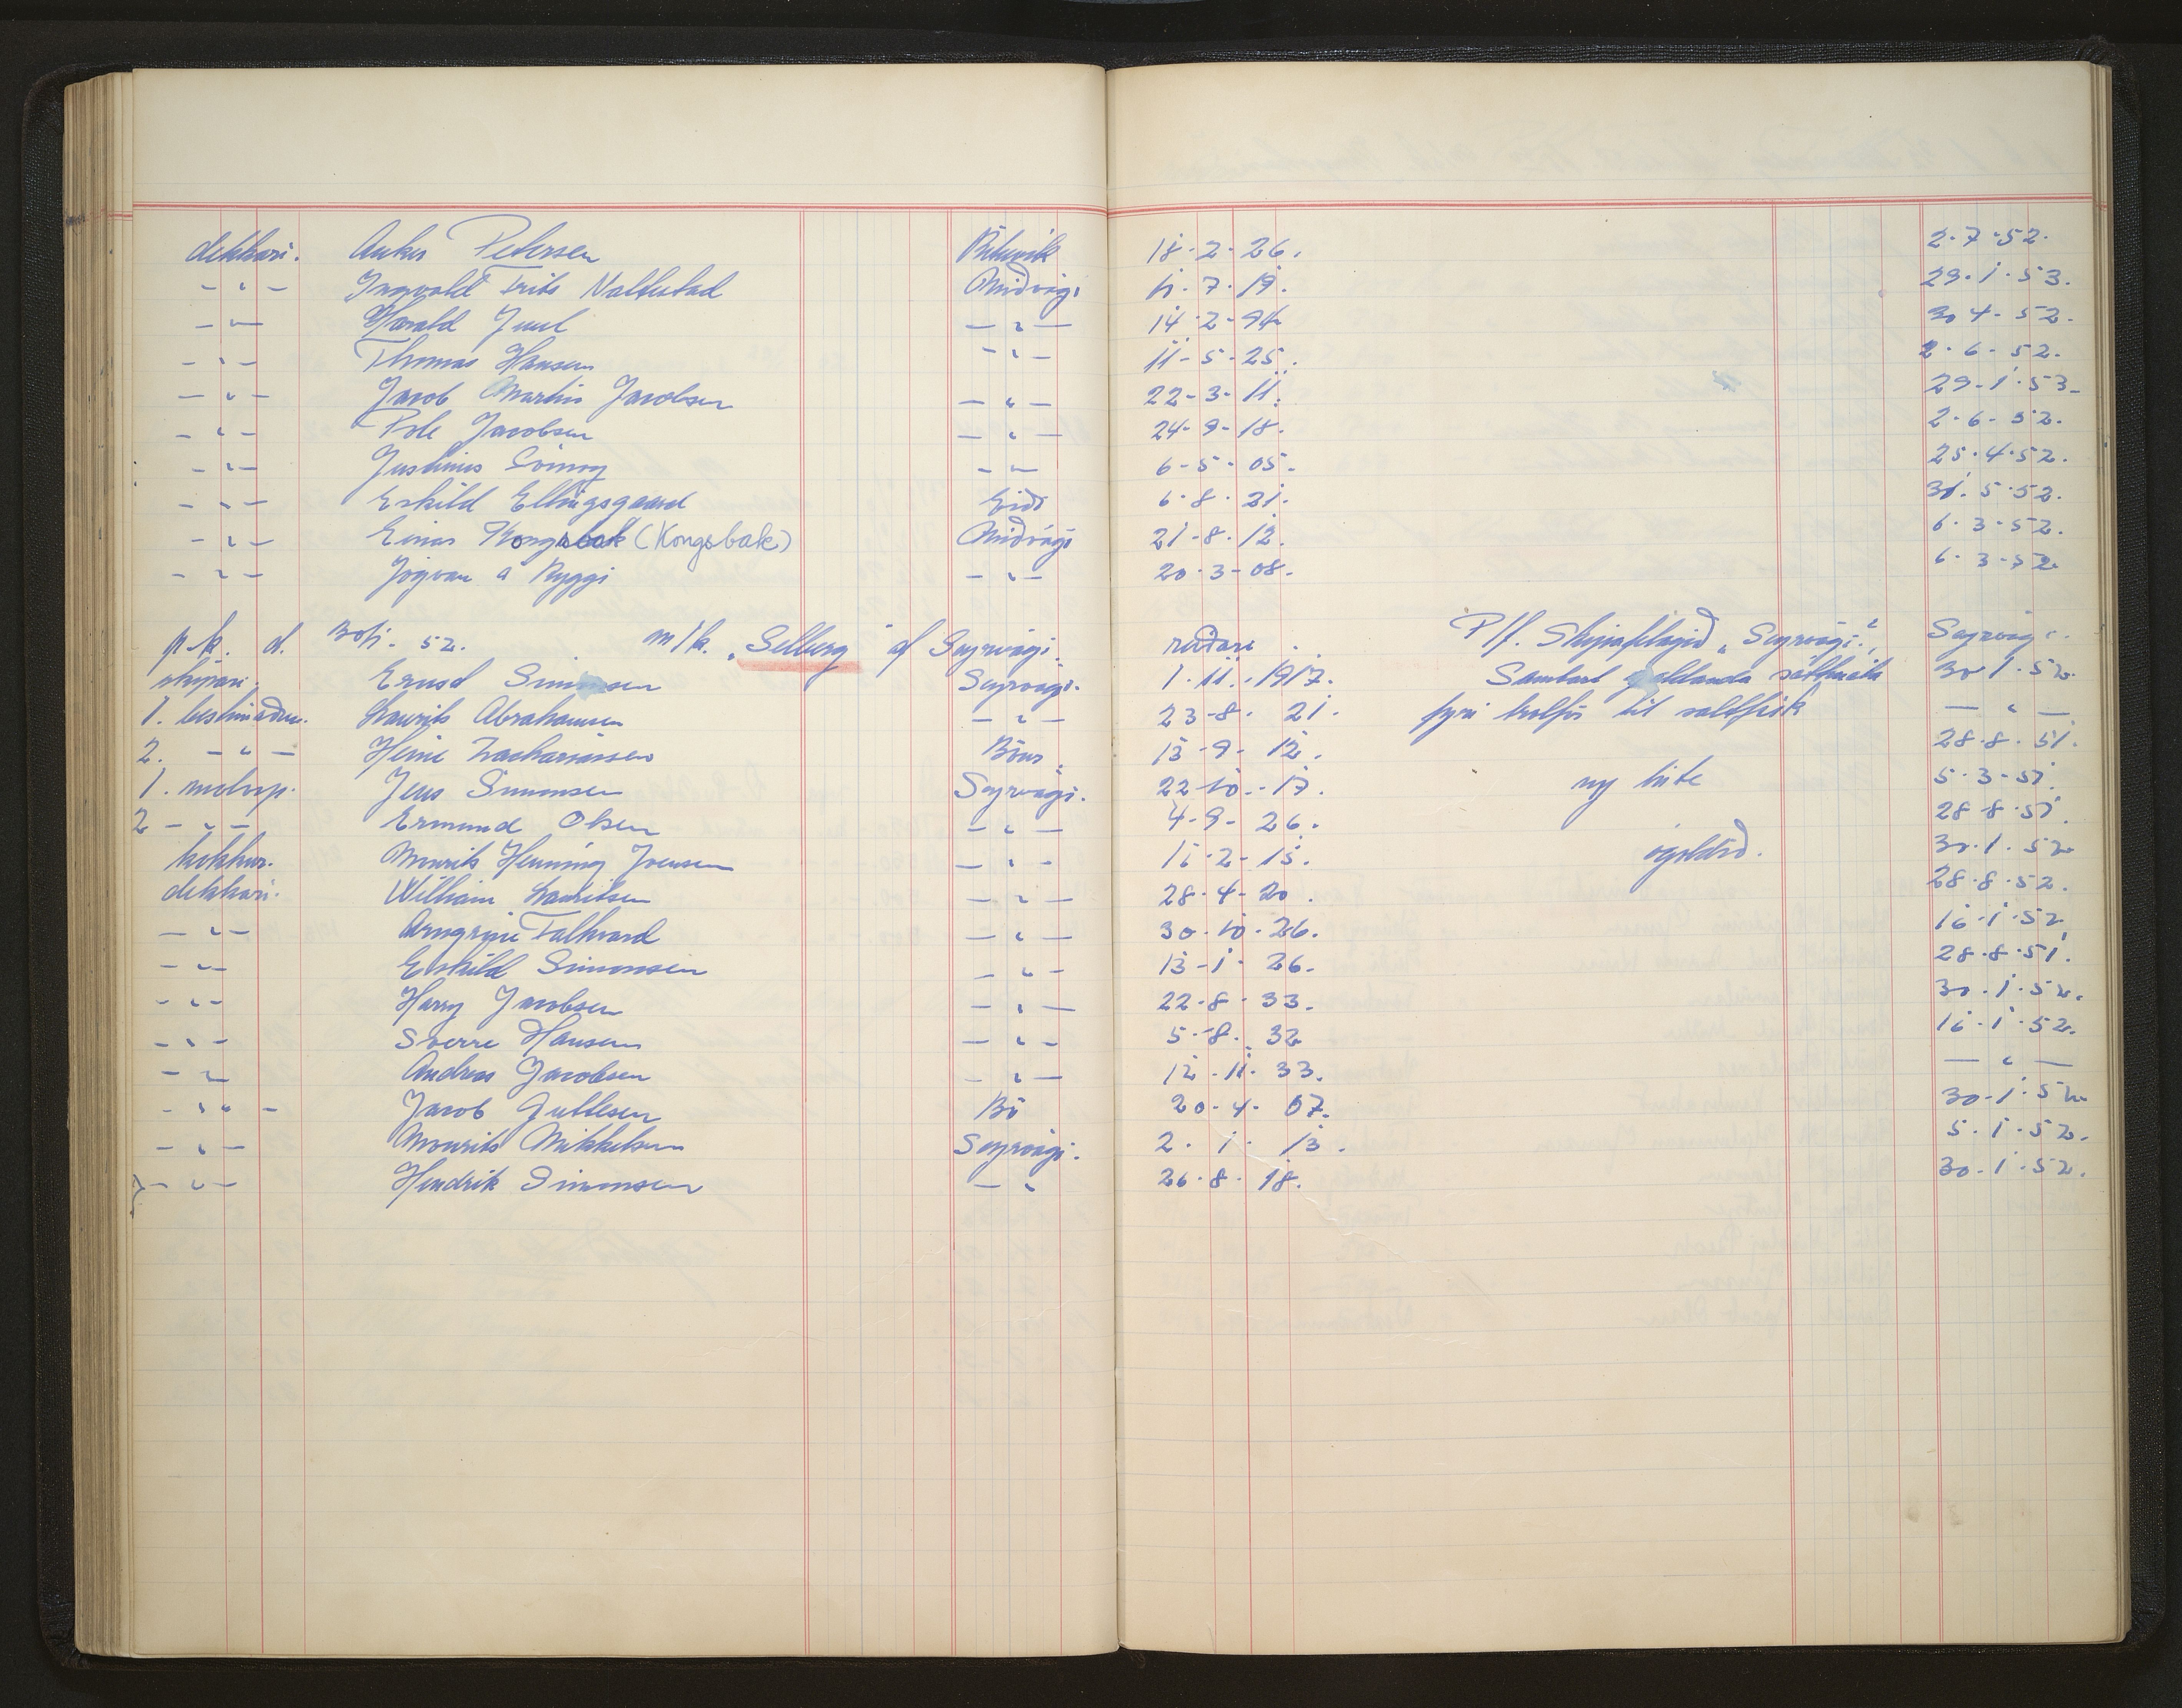 dekkari. Anker Petersen 18-2-26. 2-7-52.
- " - Ingvald Frits Nattestad Miðvági 11-7-19. 29-1-53.
- " - Harald Juul - " - 14-2-94 30 4-52.
- " - Thomas Hansen - " - 11-5-25. 2-6-52.
- " - Jacob Martin Jacobsen - " - 22-3-11. 29-1-53-
- " - Pole Jacobsen - " - 24-9-18. 2-6-52.
- " - Justinus Svinoy - " - 6-5-05. 25.4.52.
- " - Eskild Ellingsgaard Eiði 6-8-21. 31.5.52.
- " - Einar Kongsbak (Kongsbak) Miðvági 21-8-12. 6-3-52.
- " - Jógvan á Ryggi - " - 20-3-08. 6-3-52
p.k. d. 52. m/k. "Selberg" af Sayrvági. reiðari P/f. Skipafelagið "Sayrvági". Sayrvági.
skipari. Ernst Simonsen Sayrvági. 1.11.-1917. Sambart galdanda sáttmála 30-1-52.
1. bestimaður. Laurits Abrahamsen - " - 23-8-21. fyri trolfør til saltfisk - " -
2. - " - Heine Zachariassen Bøur. 13-9-12. 28-8-51.
1. motorp. Jens Simonsen Sayrvági. 22-10-17. ny hite 5-3-51.
2 - " - Ermund Olsen - " - 4-9-26. 28-8-51.
kokkur. Mourits Henning Joensen - " - 16-2-15. ógoldið. 30-1-52
dekkari. William Lauritsen - " - 28-4-20. 28-8-52.
- " - Arngrým Falkvard - " - 30-10-26. 16-1-52
- " - Eskild Simonsen - " - 13-1-26. 28-8-51.
- " - Harry Jacobsen - " - 22-8-33. 30-1-52.
- " - Sverre Hansen - " - 5-8-32 16-1-52.
- " - Andreas Jacobsen - " - 12-11-33. - " -
- " - Jacob Guttesen Bø 20-4-07. 30-1-52
- " - Mourits Mikkelsen Sayrvági. 2. 1. 13. 5-1-52.
- " - Hendrik Simonsen - " 26-8-18. 30-1-52.